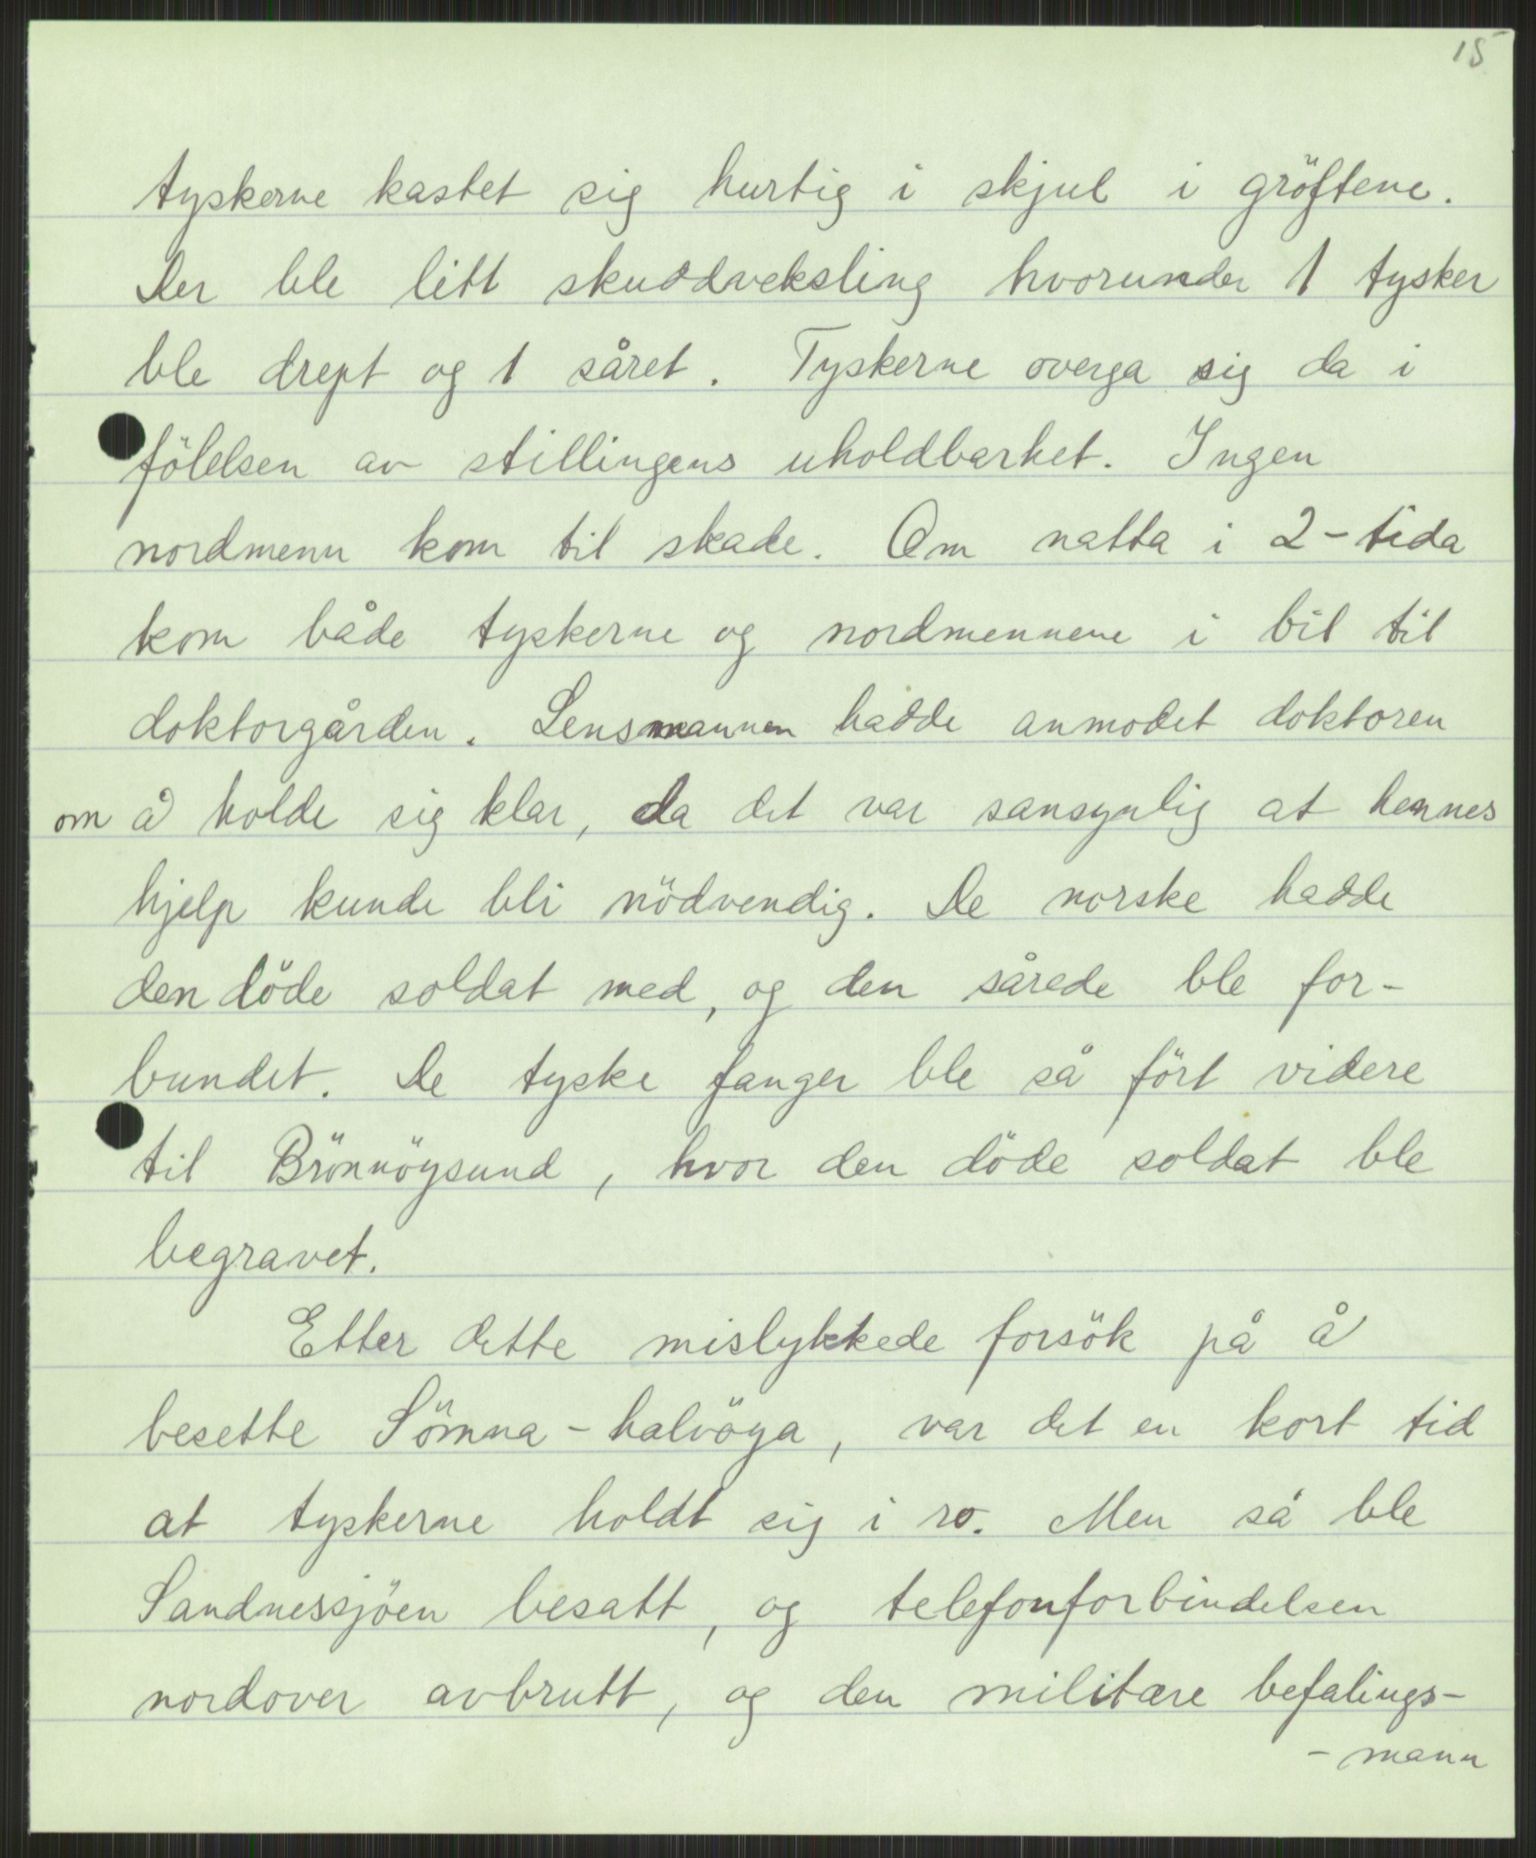 15
tyskerne kastet sig hurtig i skjul i gröftene.
Der ble litt skuddveksling hvorunder 1 tysker
ble drept og 1 såret. Tyskerne overga sig da i
fölelsen av stillingens uholdbarhet. Ingen
nordmenn kom til skade. Om natta i 2-tida
kom både tyskerne og nordmennene i bil til
doktorgården. Lensmannen hadde anmodet doktoren
om å holde sig klar, da det var sansynlig at hennes
hjelp kunde bli nödvendig. De norske hadde
den döde soldat med, og den sårede ble for-
bundet. De tyske fanger ble så fört videre
til Brönnöysund, hvor den döde soldat ble
begravet.
Etter dette mislykkede forsök på å
besette Sömna-halvöya, var det en kort tid
at tyskerne holdt sig i ro. Men så ble
Sandnessjöen besatt, og telefonforbindelsen
nordover avbrutt, og den militære befalings-
- mann